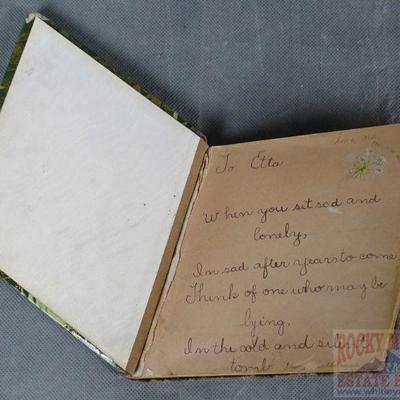 To Etta
When you sit sad and
lonely,
In sad after years to come
Think of one who may be
lying,
In the cold and silent
tomb
ROCKY M
ESTATE
www.whitley